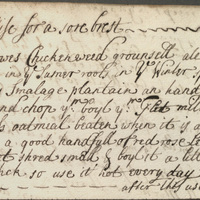 for a sore brest
Chickenweed grounsell
in ye Sumer roots in ye Winter
Smalage plantain an hand
and chop ym boyl ym
oatmeal beaten when it is a
a good handfull of red rose
shred small & boyl it a litt
so use it hot every day
after this us